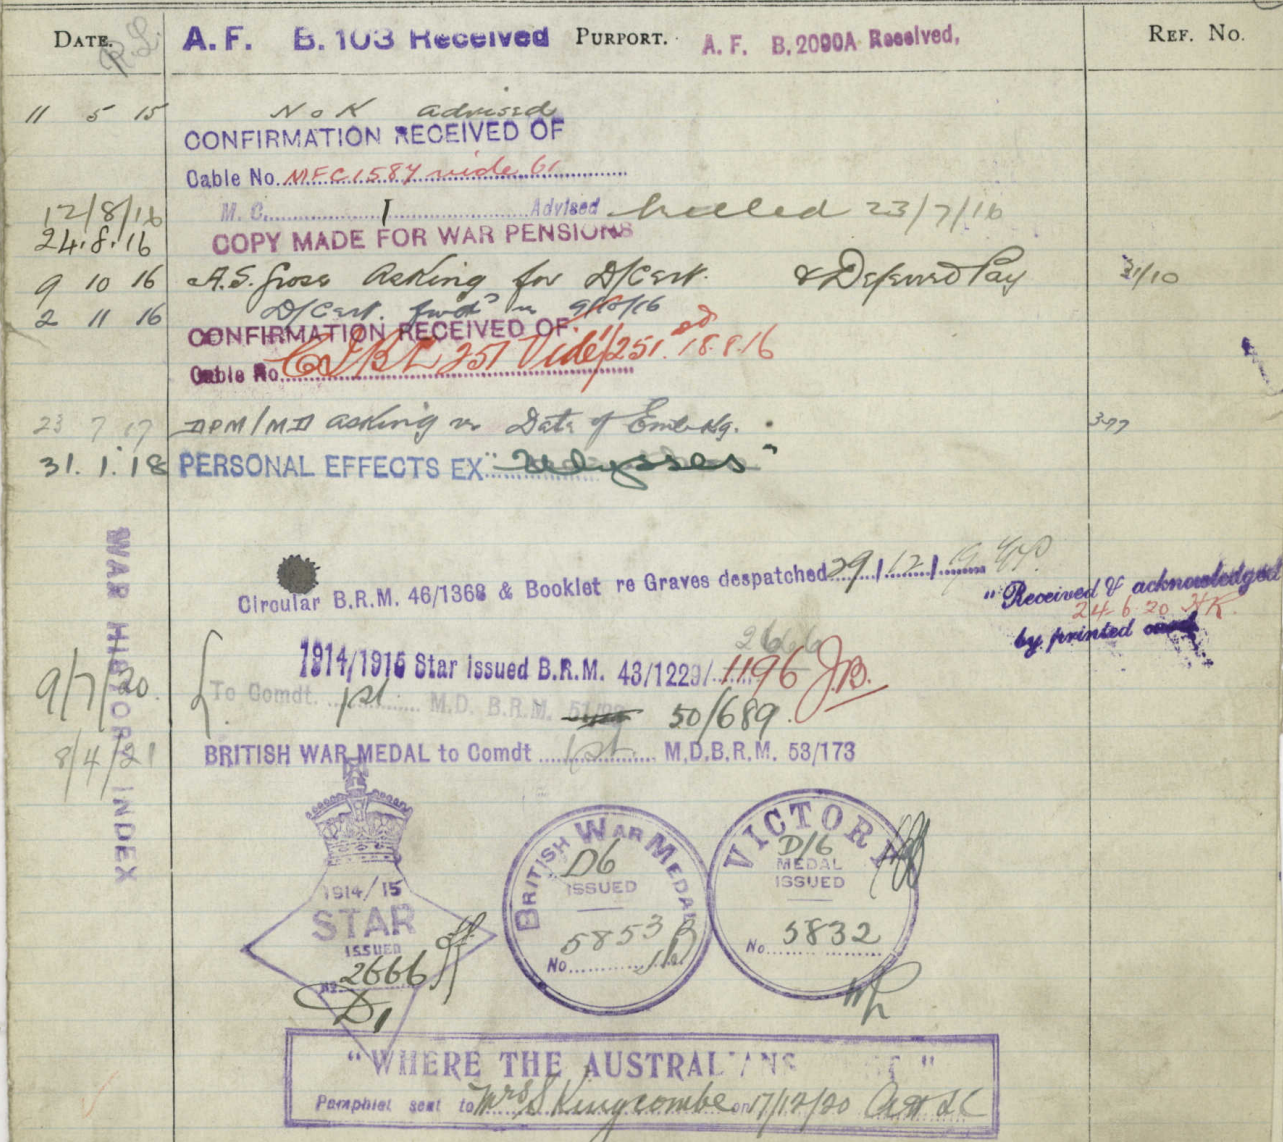 DATE. A.F. B.103 Received PURPORT. A.F. B.2090A Received, REF. No.
11 5 15 N o K advised
CONFIRMATION RECEIVED OF
Cable No. MFC1587 vide 61
12/8/16 M.C. 1 Advised killed 23/7/16
24.8.16 COPY MADE FOR WAR PENSIONS
9 10 16 A.S. Gross asking for D/Cert. & Deferred Pay 31/10
2 11 16 D/Cert. fwd 9/10/16
CONFIRMATION RECEIVED OF
Cable No. 251 Vide 251 18.8.16
23 7 17 DPM/MD asking Date of Embkg. 377
31.1.18 PERSONAL EFFECTS EX "Ulysses"
WAR HISTORY INDEX
Circular B.R.M. 46/1368 & Booklet re Graves despatched 29/12/19
"Received & acknowledged
24 6 20 HK.
by printed card
2666
1914/1915 Star issued B.R.M. 43/1229/ 1196 JB.
9/7/20. To Comdt. 1st M.D. B.R.M. 50/689.
8/4/21 BRITISH WAR MEDAL to Comdt 1st M.D.B.R.M. 53/173
1914/15
STAR
ISSUED
No. 2666
D1
BRITISH WAR MEDAL
D6
ISSUED
No. 5853
VICTORY
D/6
MEDAL
ISSUED
No. 5832
"WHERE THE AUSTRALIANS "
Pamphlet sent to Mrs S Kingcombe on 17/12/20